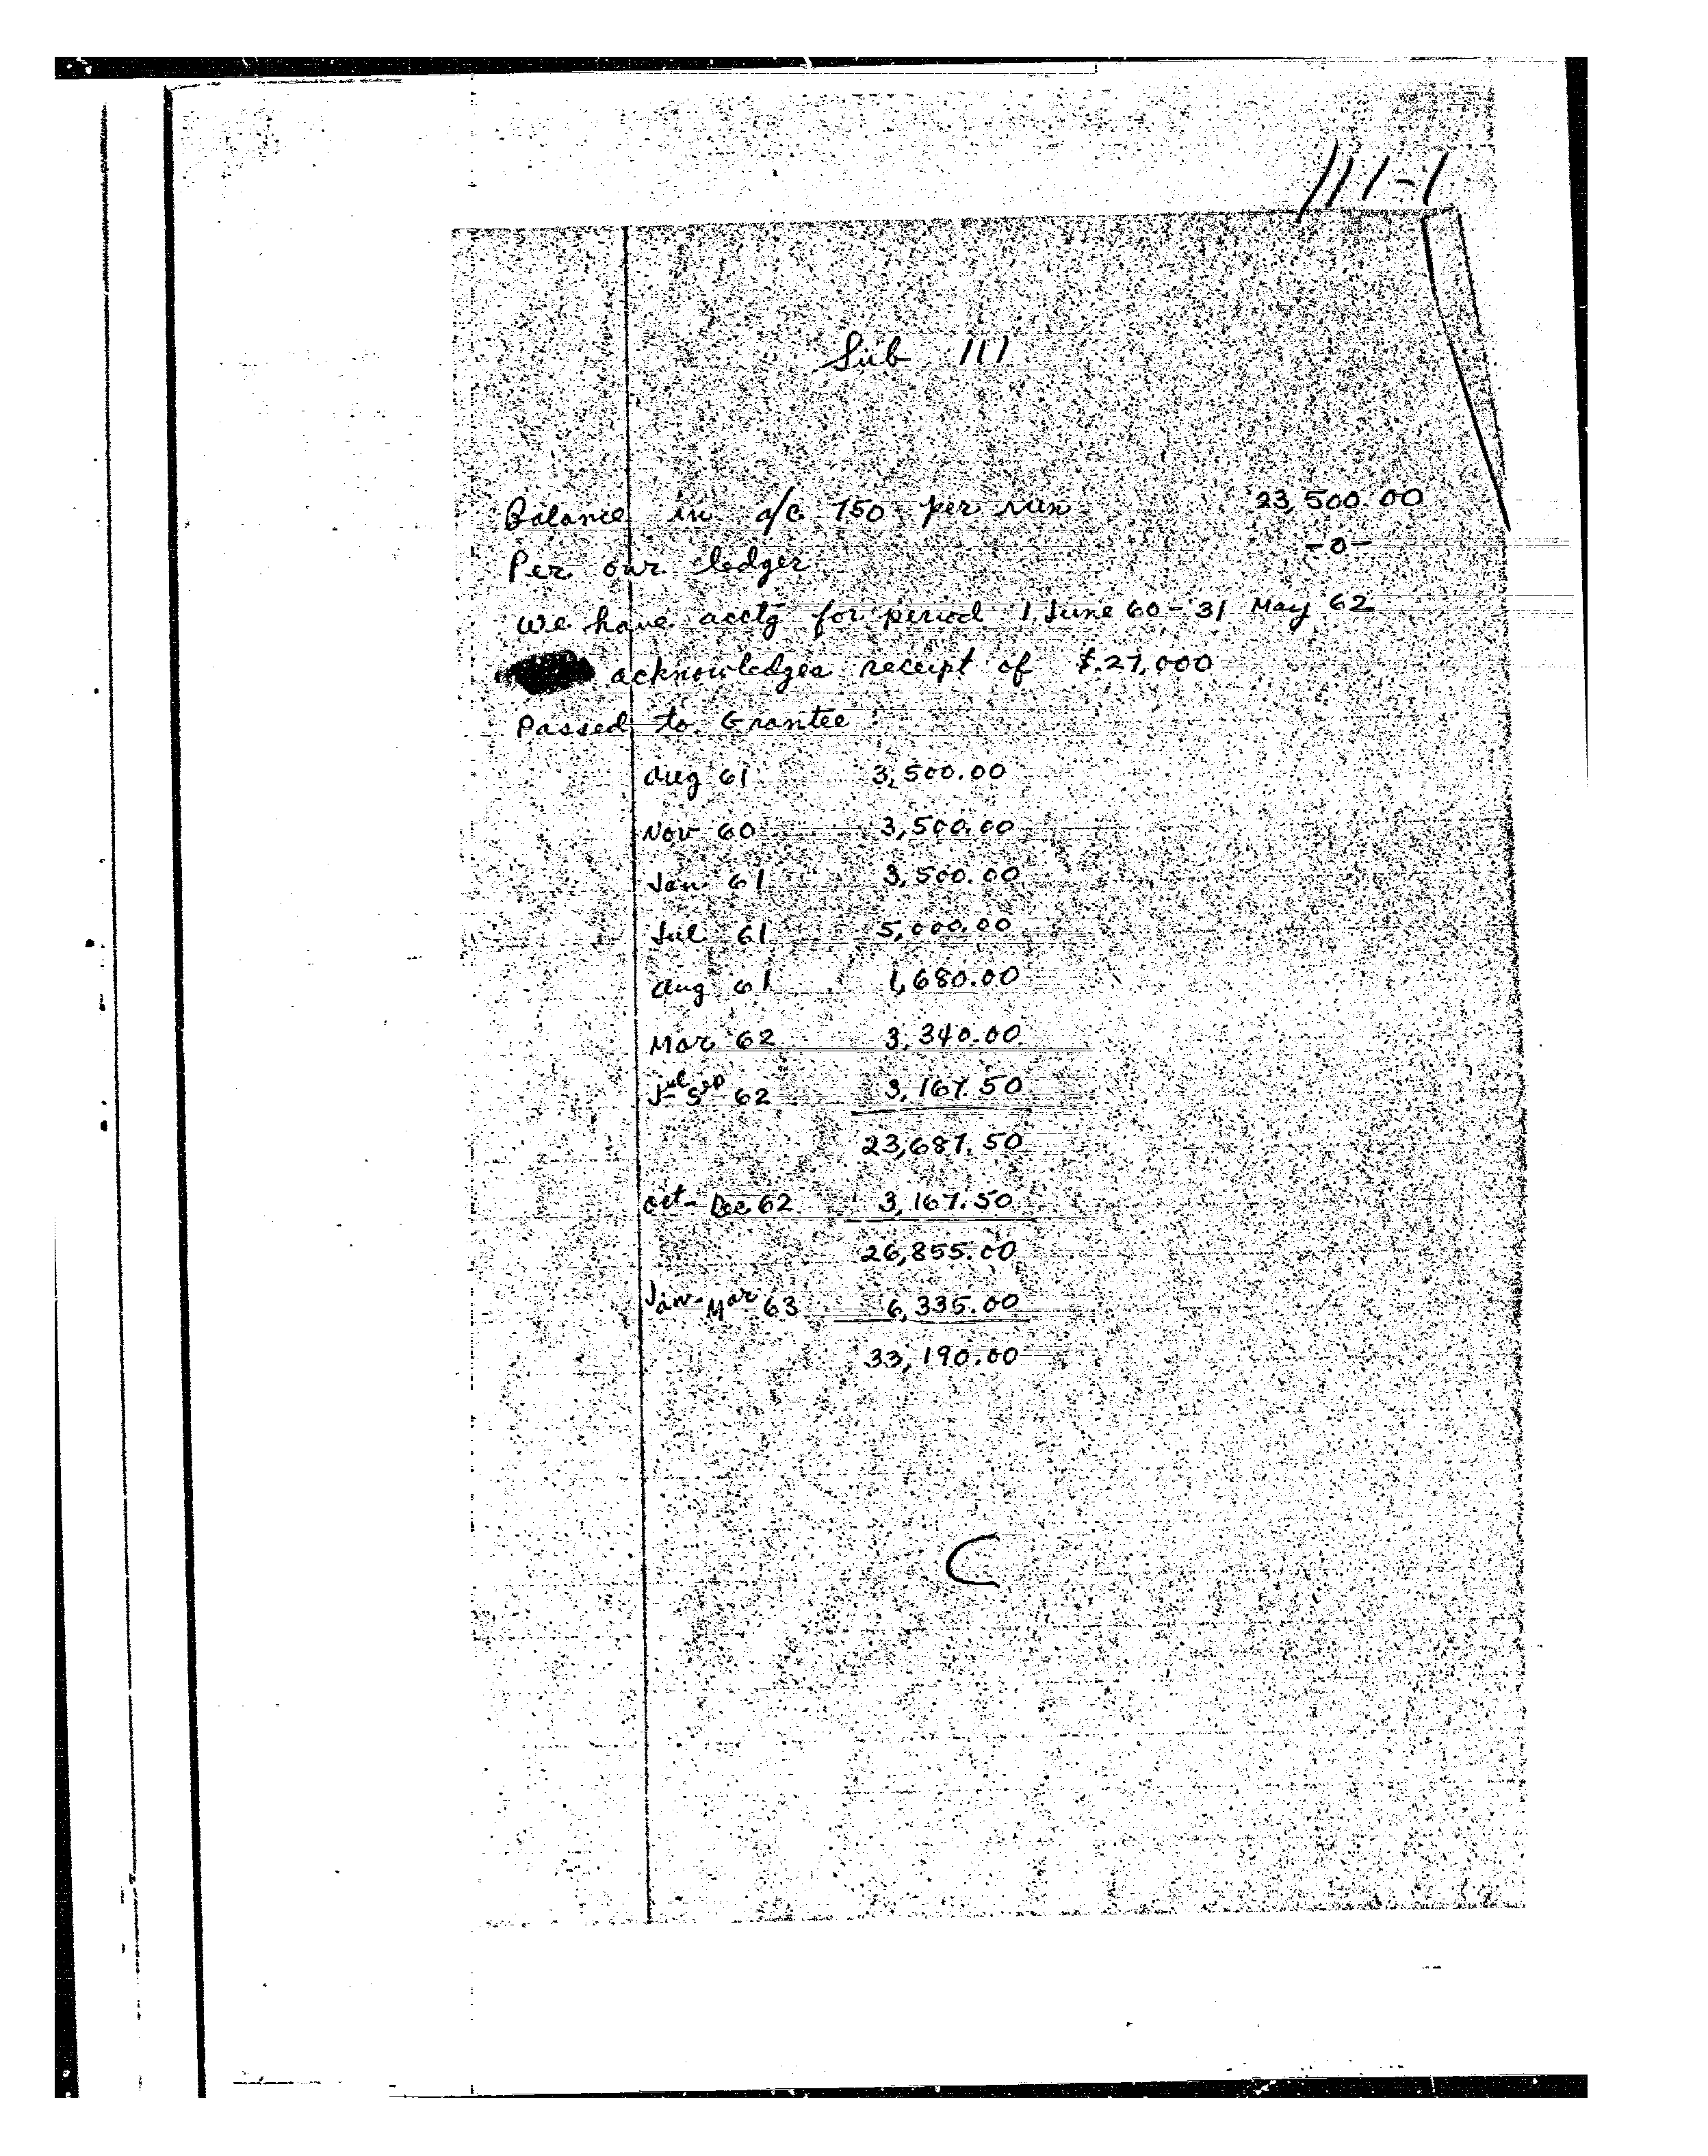 111-1
Sub 111
Balance in a/c 750 per run 23,500.00
Per our ledger -0-
We have acctg for period 1 June 60 - 31 May 62
acknowledges receipt of $27,000
Passed to Grantee:
Aug 61 3,500.00
Nov 60 3,500.00
Jan 61 3,500.00
Jul 61 5,000.00
Aug 61 1,680.00
Mar 62 3,340.00
Jul-Sep 62 3,167.50
23,687.50
Oct-Dec 62 3,167.50
26,855.00
Jan-Mar 63 6,335.00
33,190.00
C